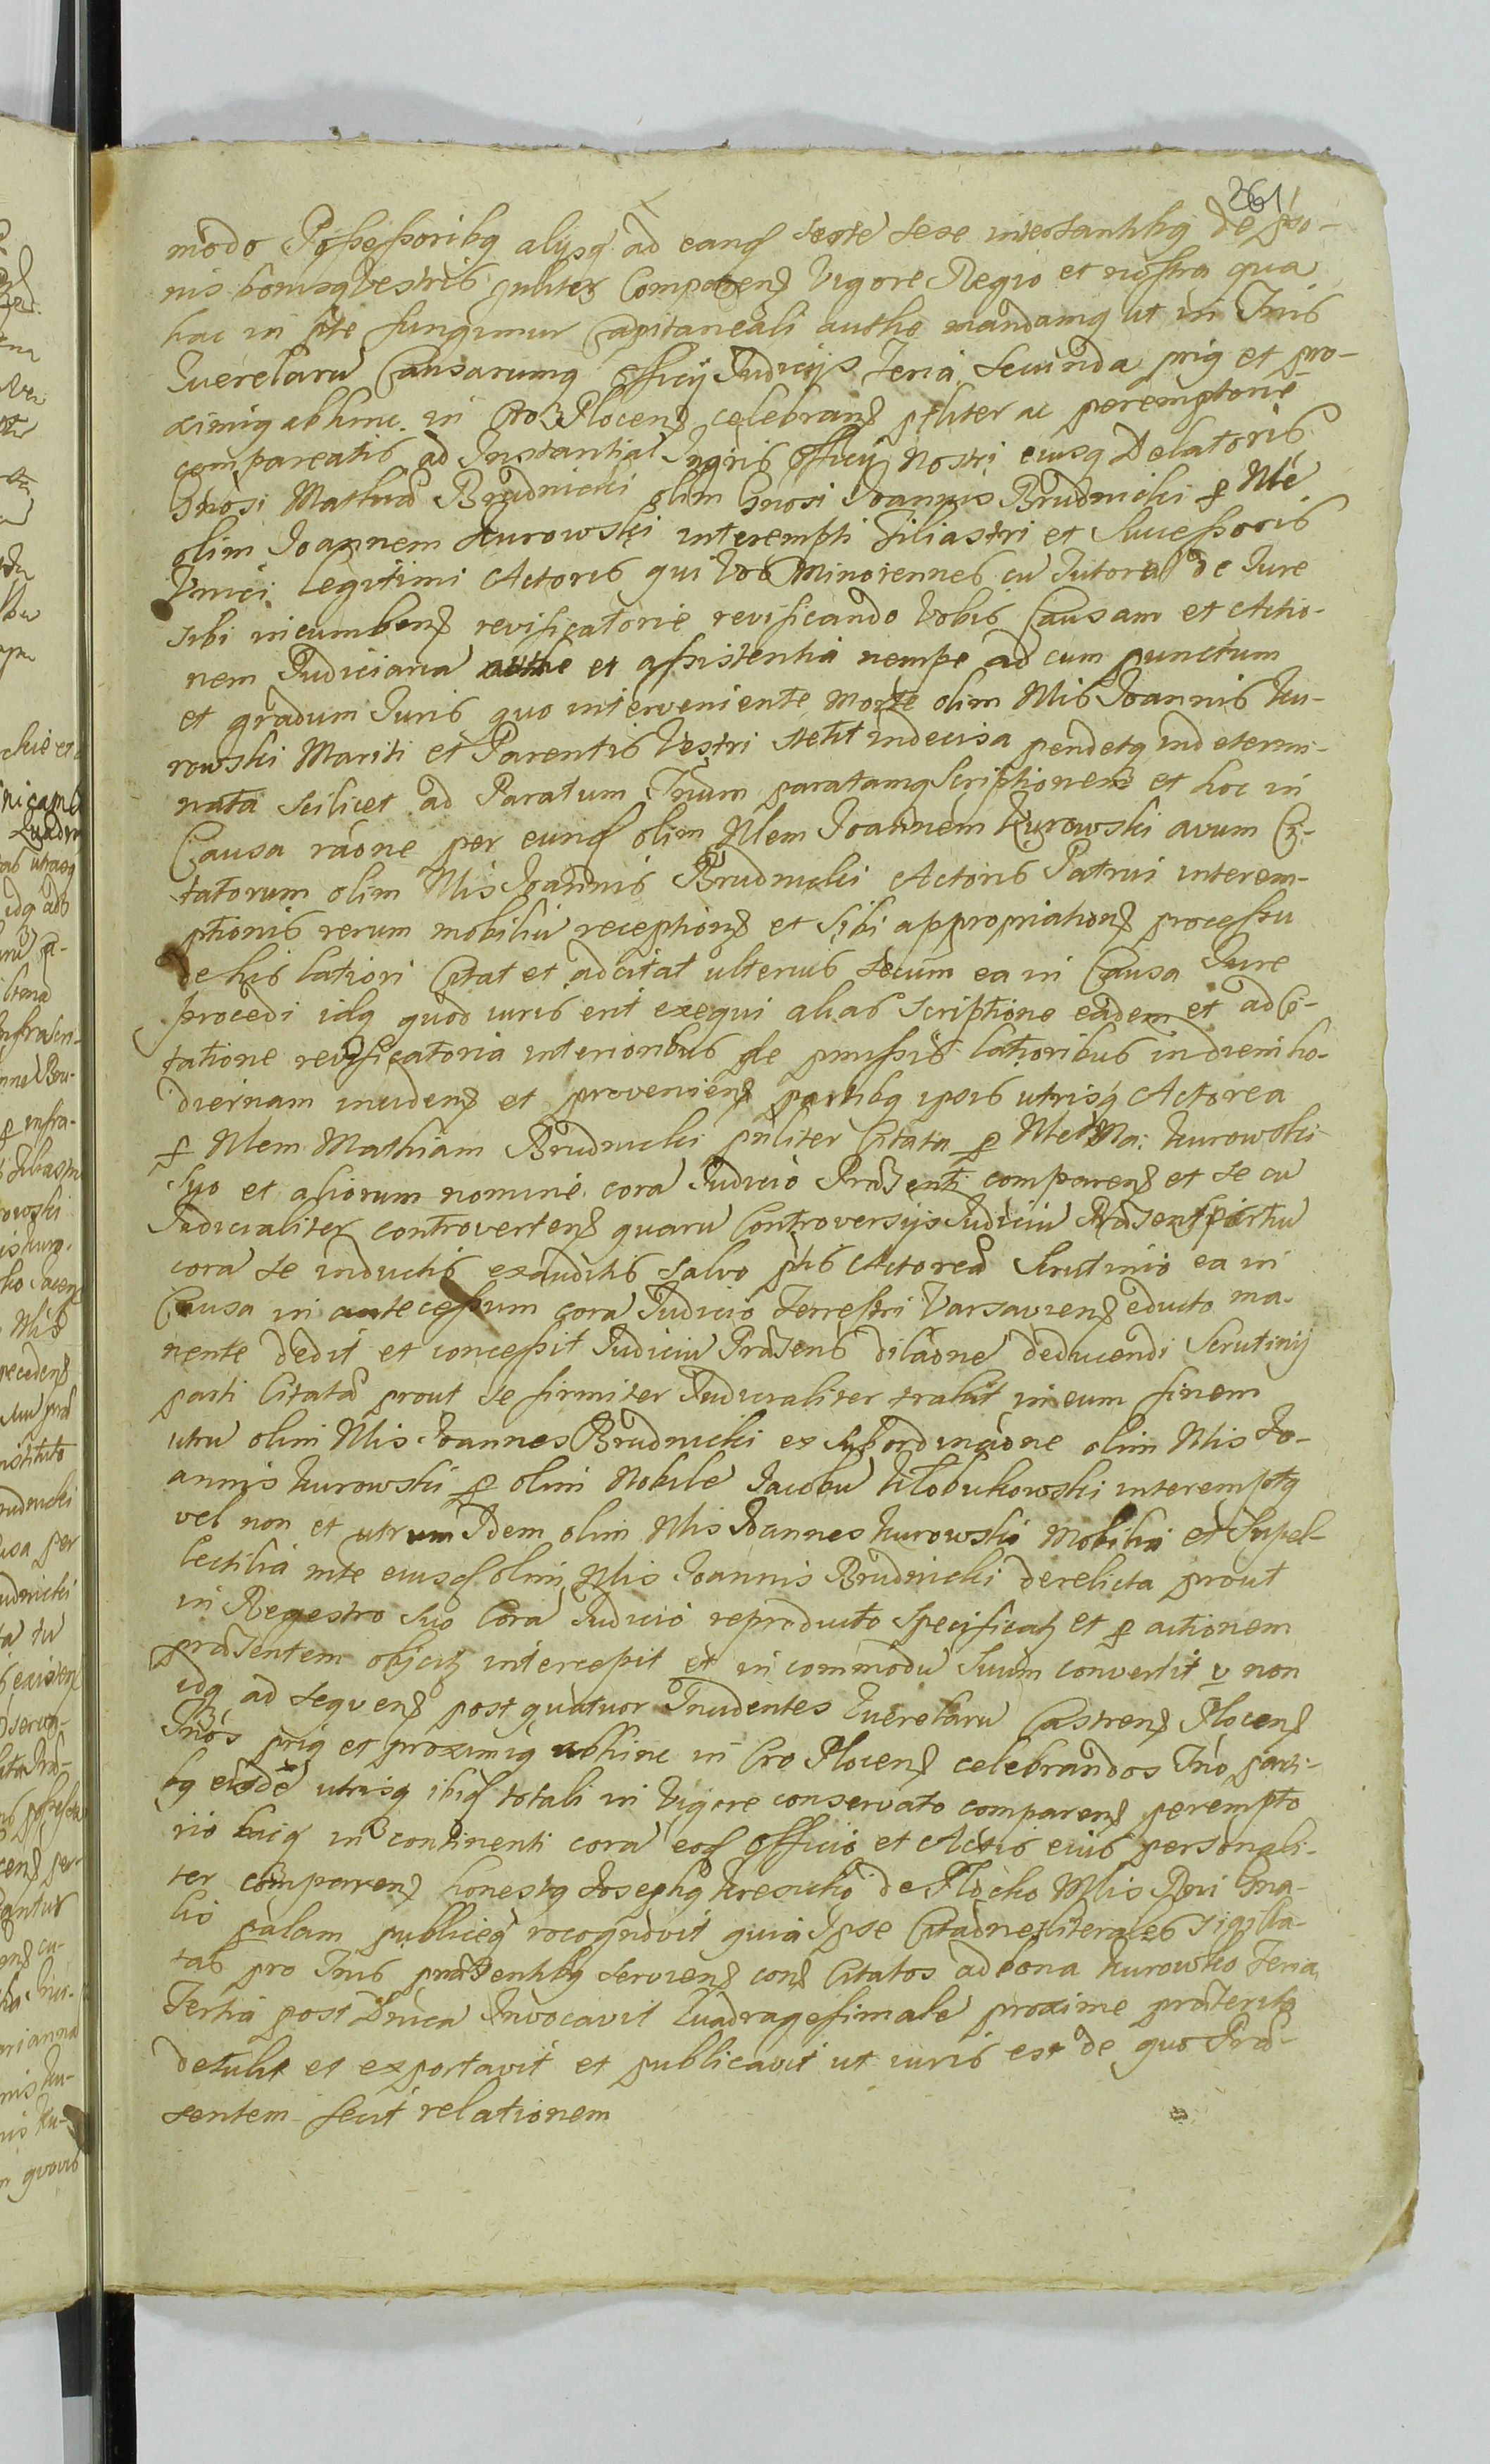 261
modo Possessoribq alijsq ad eand sorte sese intersantibq de pso-
nis bonisq vestris pnliter Comparend Vigore Regio et nostra qua
hac in pte fungimur Capitaneali authe mandamq ut in Tnis
Querelaru Causarumq officij Judicijs Feria Secunda prig et pro-
ximiq abhinc in Cro Plocend celebrand pnliter ac peremptorie
compareatis ad Instantia Ingris officij Nostri eiusq Delatoris
Gnosi Mathia Brudnicki olim Gnosi Joannis Brudnicki p Mle
olim Joannem Kurowski interempti Filiastri et Successoris
Unici legitimi Actoris qui Vos Minorennes cu Tutore de Jure
sibi incumbend revificatorie revificando Vobis Causam et Actio-
nem Judiciaria authe et assistentia nempe ad eum punctum
et gradum Juris quo interveniente morte olim Mlis Joannis Ku-
rowski Mariti et Parentis Vestri stetit indecisa pendetq indetermi-
nata scilicet ad Paratum Tnum paratamq Scriptionem et hoc in
Causa raone per eund olim Mlem Joannem Kurowski avum Ci-
tatorum olim Mlis Joannis Brudnicki Actoris Patrui interem-
ptionis rerum mobiliu receptiond et Sibi appropriationd processu
de his latiori Citat et adcitat ulterius secum ea in Causa Jure
procedi idq quod iuris erit exequi alias Scriptione eadem et adci-
tatione revificatoria interioribus de pmissis latioribus in diem ho-
diernam incidend et proveniend partibq ipsis utrisq Actorea
p Mlem Mathiam Brudnicki pnliter Citata p Mlem Ma: Kurowski
Suo et aliorum nomine cora Judicio Prasenti comparend et se cu
Judicialiter controvertend quaru Controversijs Judiciu Prasens partiu
cora se inductis exauditis salvo ptis Actorea Scrutinio ea in
Causa in antecessum cora Judicio Terrestri Varsaviend educto ma-
nente dedit et concessit Judiciu Prasens dilaone deducendi Scrutinij
parti Citata prout se firmiter Judicialiter trahit in eum finem
utru olim Mlis Joannes Brudnicki ex Subordinaone olim Mlis Jo-
annis Kurowski p olim Nobile Jacobu Kłobukowski interemptq
vel non et utrum Idem olim Mlis Joannes Kurowski Mobilia et Supel-
lectilia mte eiusd olim Mlis Joannis Brudnicki derelicta prout
in Regestro suo Cora Judicio reproducto Specificatq et p actionem
prasentem objectq intercepit et in commodu Suum convertit v non
idq ad sequend post quatuor Inudentes Querelaru Castrend Plocend
Tnos prig et proximiq abhinc in Cro Plocend celebrandos Tno parti-
bq eisde utrisq ibid totali in Vigore conservato comparend perempto
rio huiq in continenti cora eod officio et Actis eius personali-
ter comparend honestq Josephq de Plocko Mlis Rni Gna-
lis palam publiceq recognovit quia Ipse Citaones literales sigilla-
tas pro Tnis prasentibq serviend cond Citatos ad bona Kurowko Feria
Tertia post Dnica Invocavit Quadragesimale proxime prateritq
detulit et exportavit et publicavit ut iuris est de quo Pra-
sentem fecit relationem